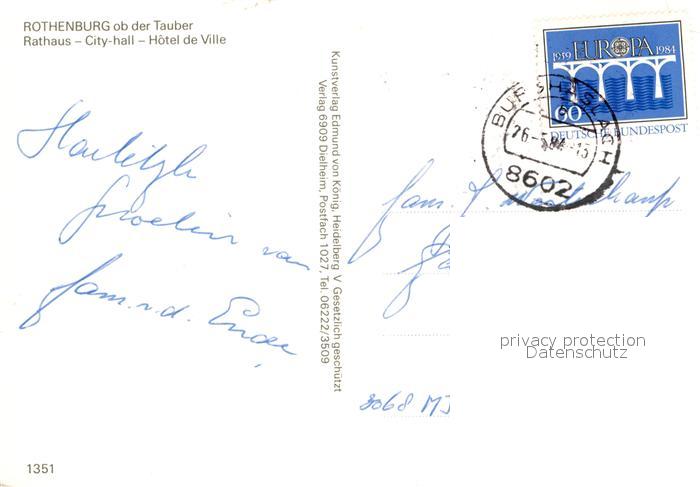 ROTHENBURG ob der Tauber
Rathaus – City-hall – Hôtel de Ville
Hartelijke
groeten van
fam. v.d. Ende
1351
Kunstverlag Edmund von König, Heidelberg V Gesetzlich geschützt
Verlag 6909 Dielheim, Postfach 1027, Tel. 06222/3509
1959 EUROPA 1984
60
DEUTSCHE BUNDESPOST
BURGHASLACH
26.-5.84.-15
8602
fam.
privacy protection
Datenschutz
3068 MJ